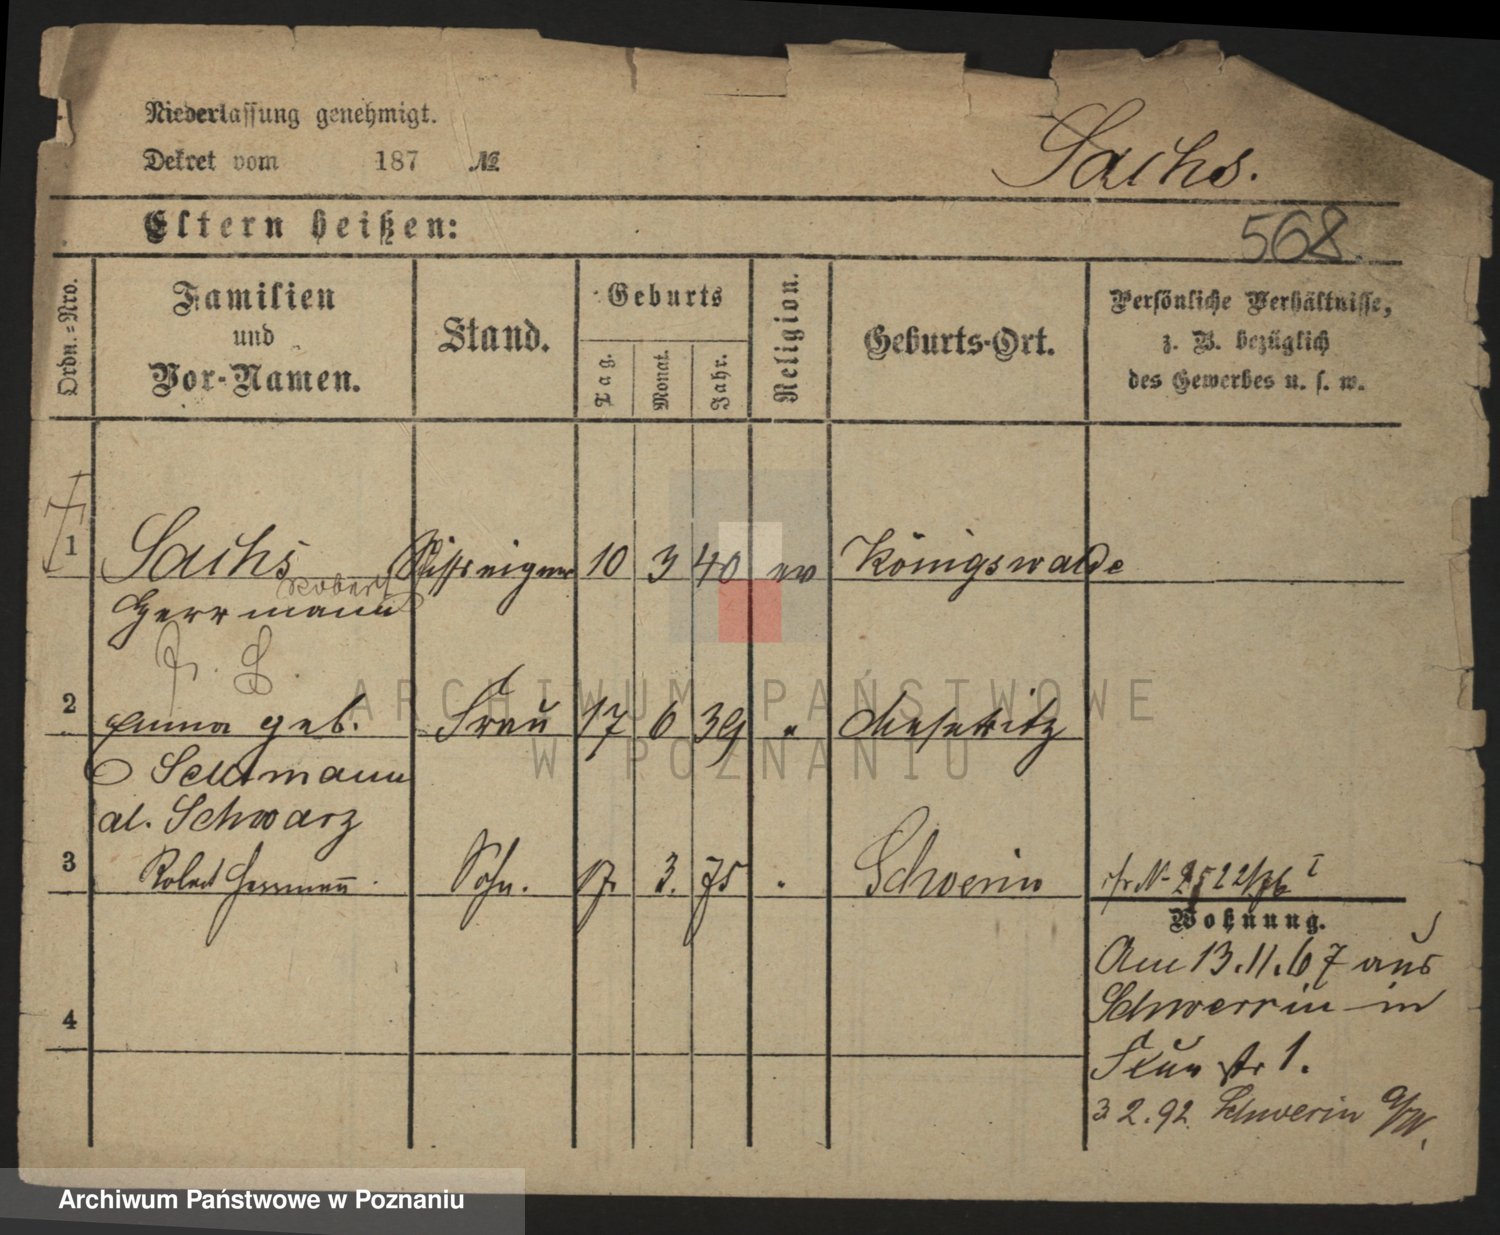 Niederlassung genehmigt.
Dekret vom 187 №
Sachs.
Eltern heißen:
568.
Ordn.=Nro.
Familien
und
Vor-Namen.
Stand.
Geburts
Tag.
Monat.
Jahr.
Religion.
Geburts-Ort.
Persönliche Verhältnisse,
z. B. bezüglich
des Gewerbes u. s. w.
1 Sachs Schiffseigner 10 3 40 ev Königswalde
Robert
Herrmann
2 Anna geb. Frau 17 6 39 " Meseritz
Seltmann
al. Schwarz
3 Robert Herrmann. Sohn. 17. 3. 75 " Schwerin 2522/76 I
Wohnung.
Am 13.11.67 aus
Schwerrin in
str 1.
4
3 2.92 Schwerin a/W.
ARCHIWUM PAŃSTWOWE
W POZNANIU
Archiwum Państwowe w Poznaniu